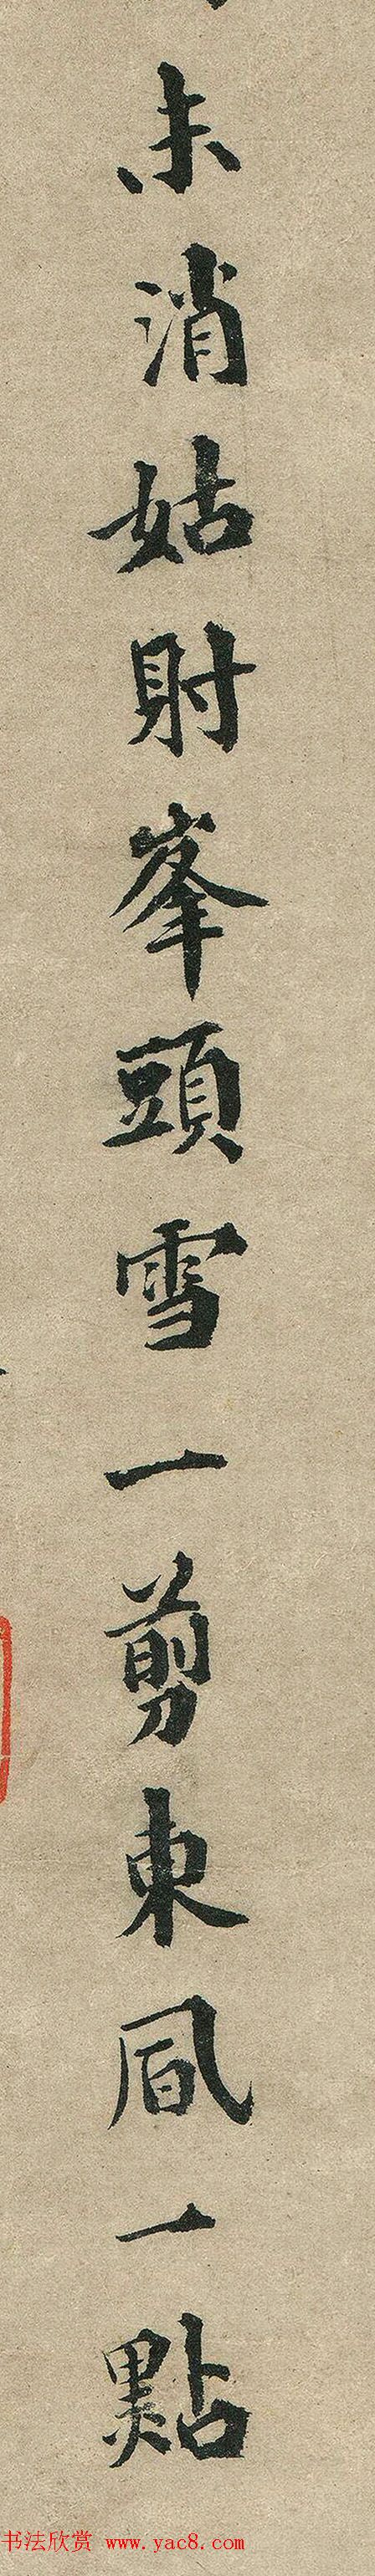 未消姑射峯頭雪一剪東風一點
书法欣赏 www.yac8.com